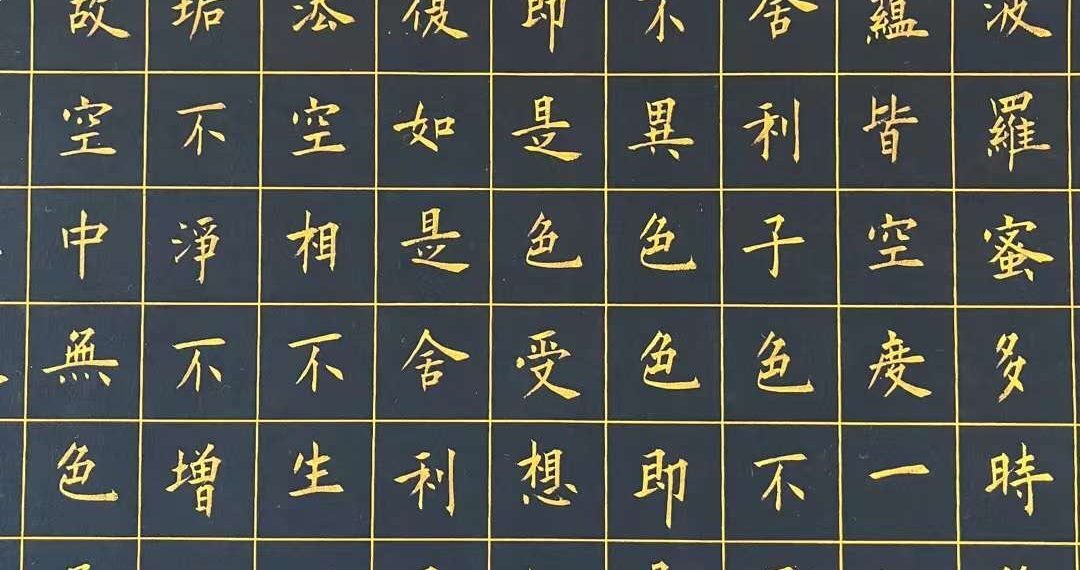 波羅蜜多時
蘊皆空度一
舍利子色不
不異色色即
即是色受想
復如是舍利
法空相不生
垢不淨不增
故空中無色